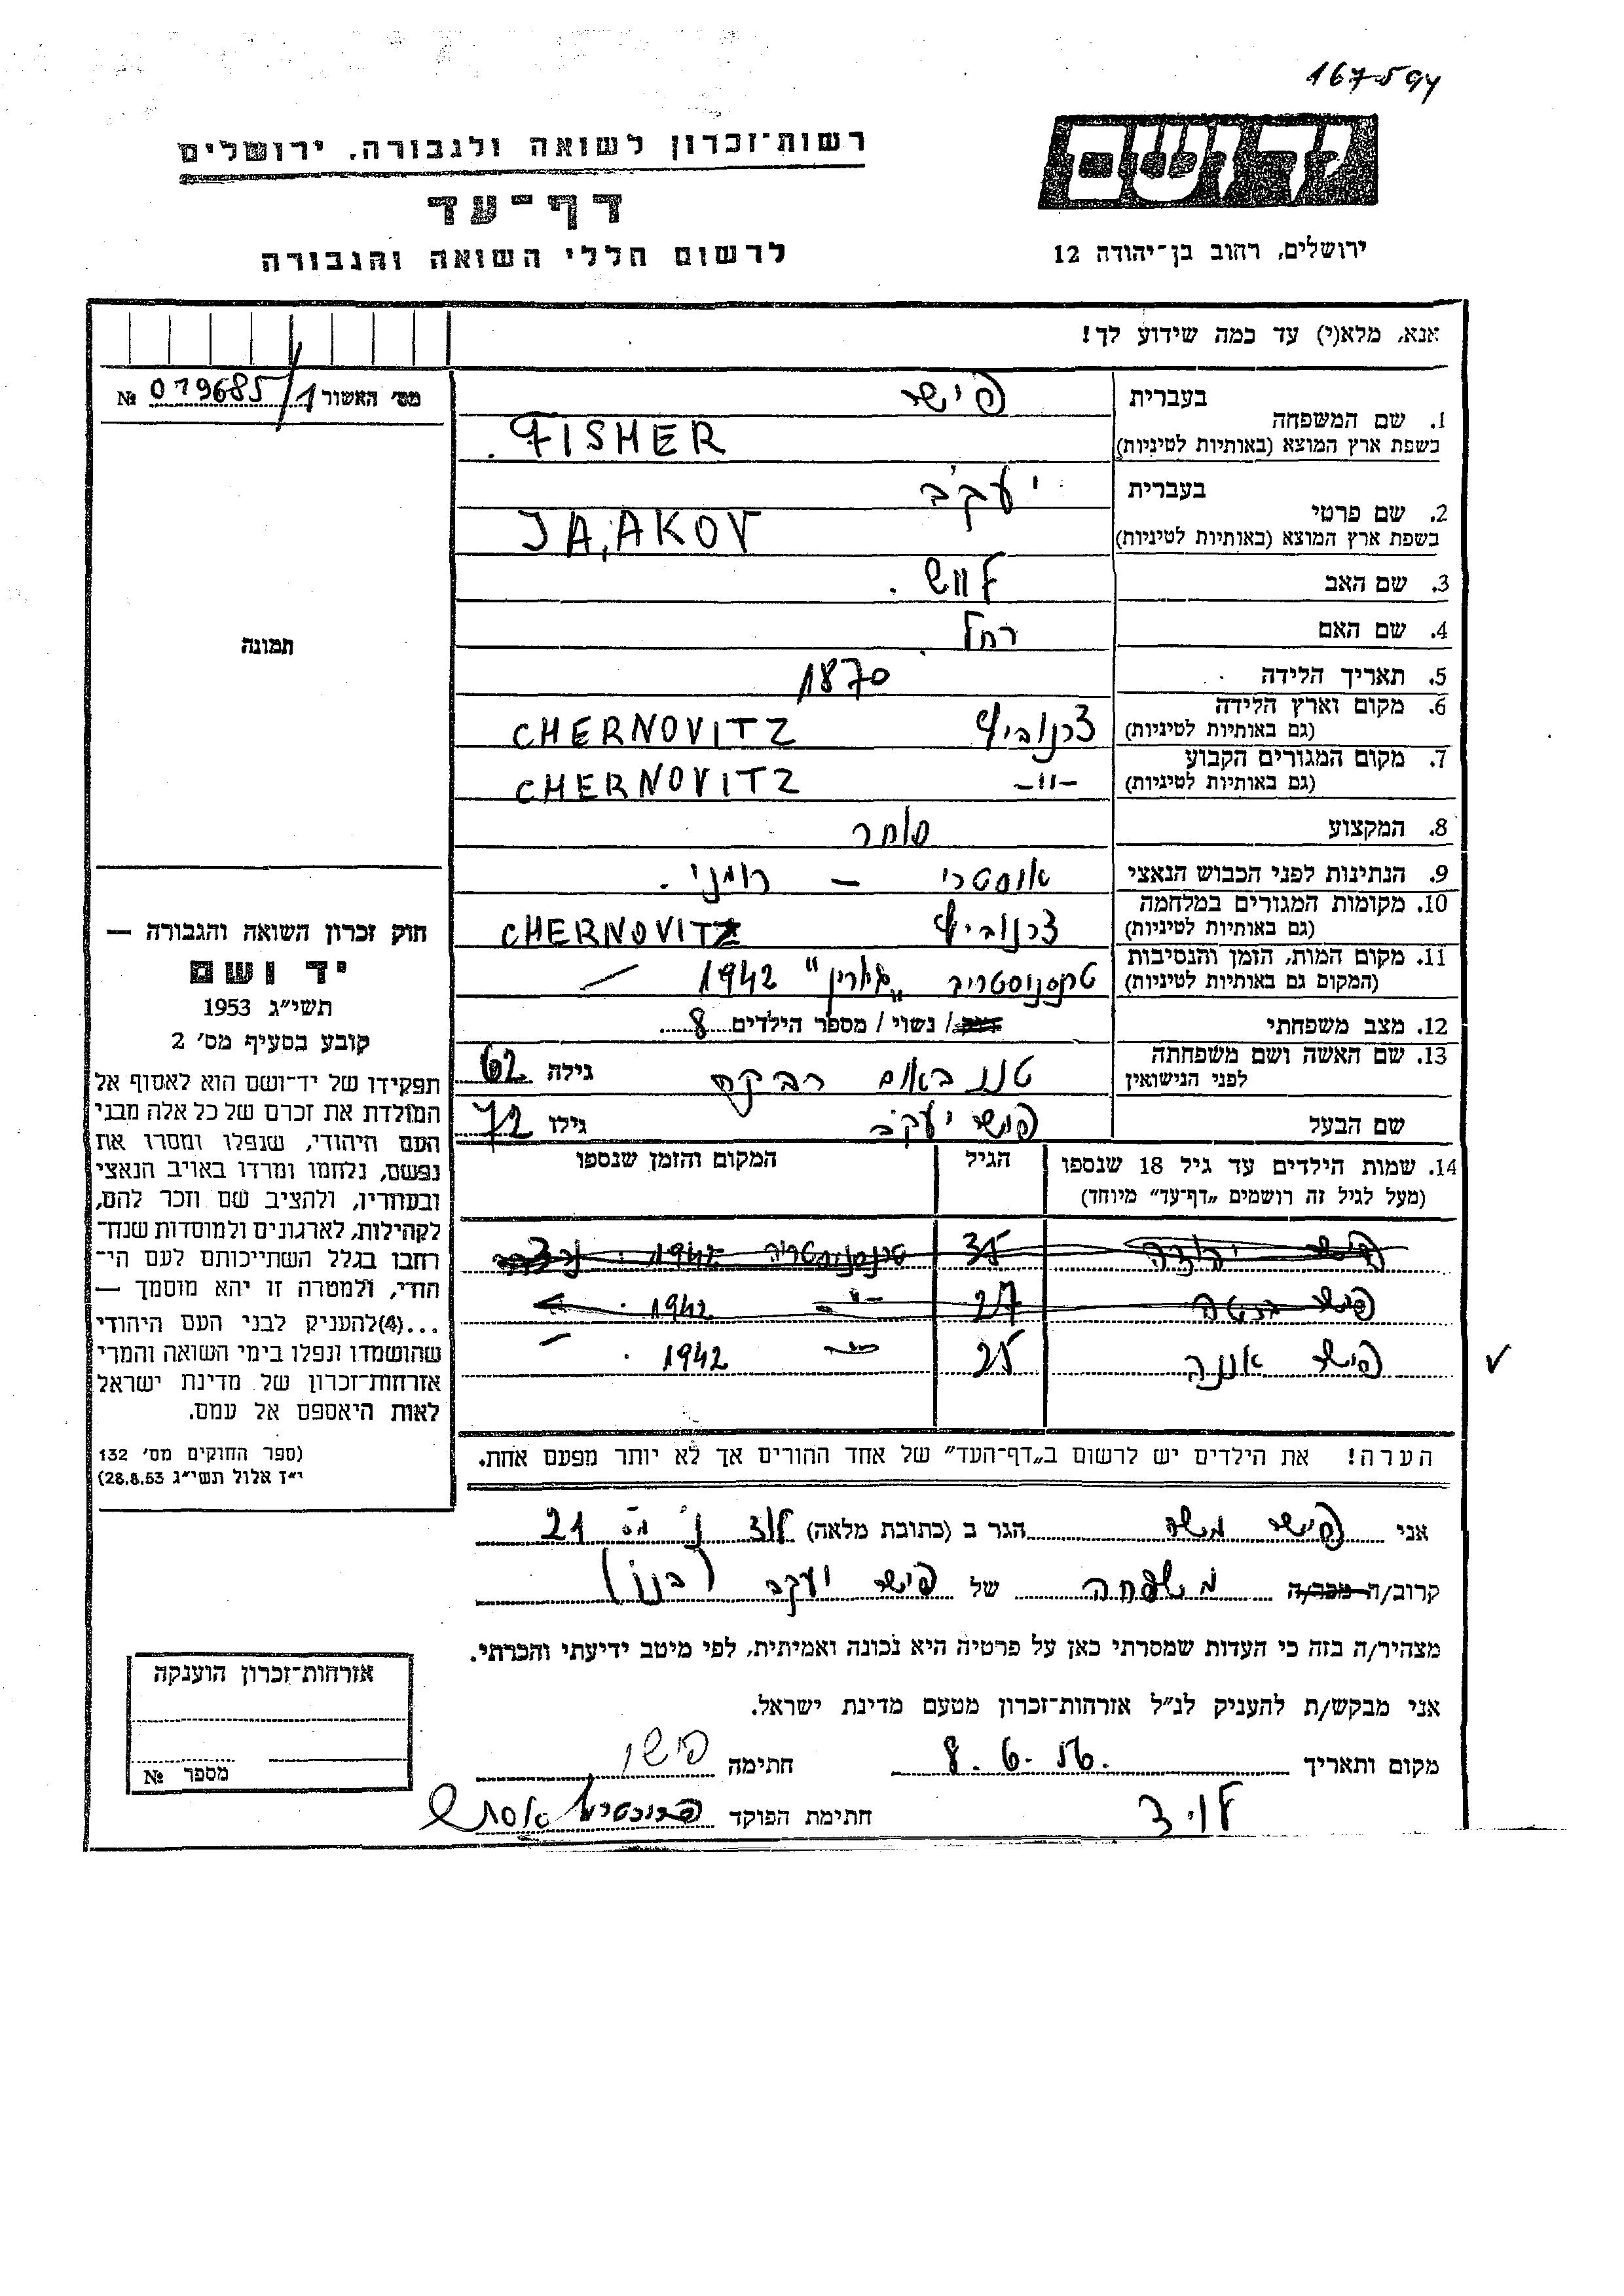 167594
רשות־זכרון לשואה ולגבורה, ירושלים
דף־עד
לרשום חללי השואה והגבורה
ידושם
ירושלים, רחוב בן־יהודה 12
אנא, מלא(י) עד כמה שידוע לך!
מס׳ האשור 1/ 079685 №
תמונה
1. שם המשפחה בעברית פישר
בשפת ארץ המוצא (באותיות לטיניות) FISHER
2. שם פרטי בעברית יעקב
בשפת ארץ המוצא (באותיות לטיניות) JA,AKOV
3. שם האב
4. שם האם רחל
5. תאריך הלידה 1870
6. מקום וארץ הלידה (גם באותיות לטיניות) צרנוביץ CHERNOVITZ
7. מקום המגורים הקבוע (גם באותיות לטיניות) -״- CHERNOVITZ
8. המקצוע סוחר
9. הנתינות לפני הכבוש הנאצי אוסטרי – רומני.
10. מקומות המגורים במלחמה (גם באותיות לטיניות) צרנוביץ CHERNOVITZ
11. מקום המות, הזמן והנסיבות (המקום גם באותיות לטיניות) טרנסניסטריה 1942
12. מצב משפחתי רווק/ נשוי / מספר הילדים 8
13. שם האשה ושם משפחתה לפני הנישואין רבקה גילה 62
שם הבעל פישר יעקב גילו 72
14. שמות הילדים עד גיל 18 שנספו (מעל לגיל זה רושמים „דף־עד״ מיוחד) הגיל המקום והזמן שנספו
פישר יהודה 35 טרנסניסטריה 1942
פישר 27 -״- 1942
פישר אננה 25 -״- 1942
הערה! את הילדים יש לרשום ב„דף־העד״ של אחד ההורים אך לא יותר מפעם אחת.
חוק זכרון השואה והגבורה —
יד ושם
תשי״ג 1953
קובע בסעיף מס׳ 2
תפקידו של יד־ושם הוא לאסוף אל
המולדת את זכרם של כל אלה מבני
העם היהודי, שנפלו ומסרו את
נפשם, נלחמו ומרדו באויב הנאצי
ובעוזריו, ולהציב שם וזכר להם,
לקהילות, לארגונים ולמוסדות שנח־
רחבו בגלל השתייכותם לעם הי־
הודי, ולמטרה זו יהא מוסמך —
...(4)להעניק לבני העם היהודי
שהושמדו ונפלו בימי השואה והמרי
אזרחות־זכרון של מדינת ישראל
לאות היאספם אל עמם.
(ספר החוקים מס׳ 132
י״ז אלול תשי״ג 28.8.53)
אני פישר משה הגר ב (כתובת מלאה) לוד 21
קרוב/ה מכר/ה משפחה של פישר יעקב (בנו)
מצהיר/ה בזה כי העדות שמסרתי כאן על פרטיה היא נכונה ואמיתית, לפי מיטב ידיעתי והכרתי.
אני מבקש/ת להעניק לנ״ל אזרחות־זכרון מטעם מדינת ישראל.
מקום ותאריך 8.6.56. חתימה פישר
לוד חתימת הפוקד
אזרחות־זכרון הוענקה
מספר №